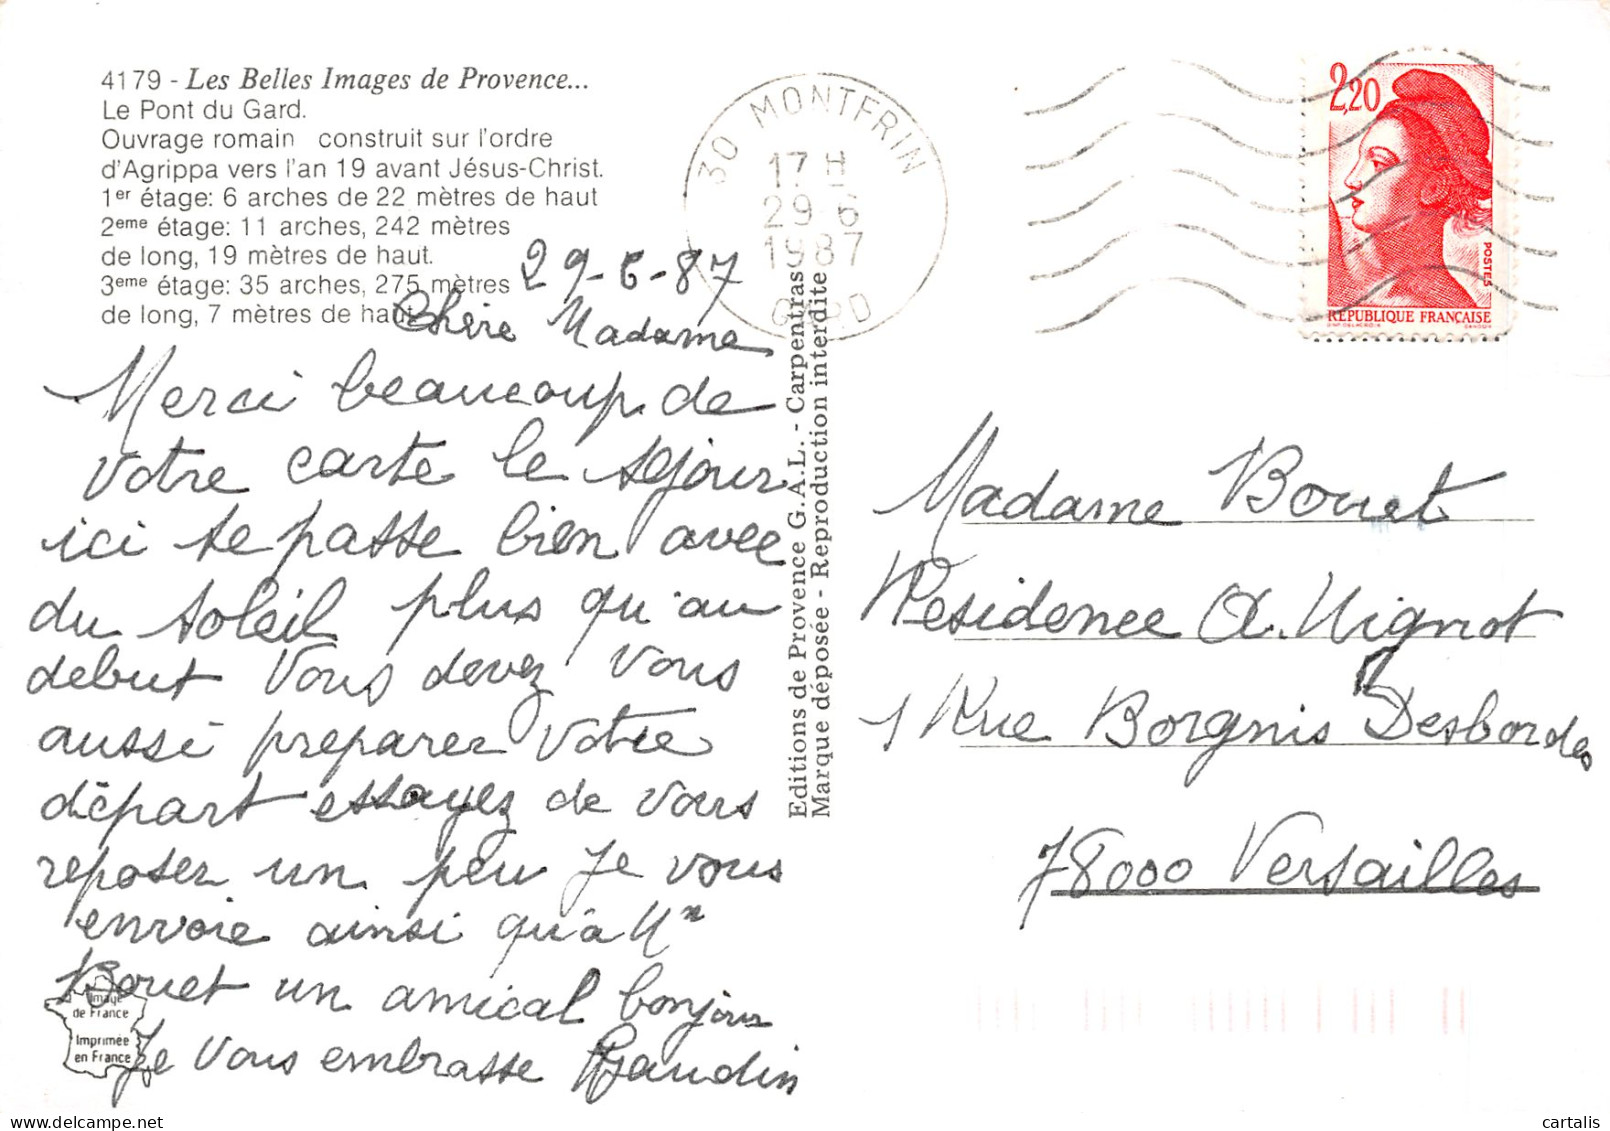 4179 - Les Belles Images de Provence...
Le Pont du Gard.
Ouvrage romain construit sur l'ordre
d'Agrippa vers l'an 19 avant Jésus-Christ.
1er étage: 6 arches de 22 mètres de haut
2eme étage: 11 arches, 242 mètres
de long, 19 mètres de haut.
3eme étage: 35 arches, 275 mètres
de long, 7 mètres de haut.
29-6-87
Chère Madame
Merci beaucoup de
votre carte le séjour
ici se passe bien avec
du soleil plus qu'au
debut Vous devez Vous
aussi preparer votre
départ essayez de vous
reposer un peu Je vous
envoie ainsi qu'à Mr
Bouet un amical bonjour
Je vous embrasse Gaudin
Image
de France
Imprimée
en France
Editions de Provence G.A.L. - Carpentras
Marque déposée - Reproduction interdite
30 MONTFRIN
17 H
29 6
1987
GARD
2,20
POSTES
REPUBLIQUE FRANÇAISE
Madame Bouet
Residence A. Mignot
1 Rue Borgnis Desbordes
78000 Versailles
cartalis